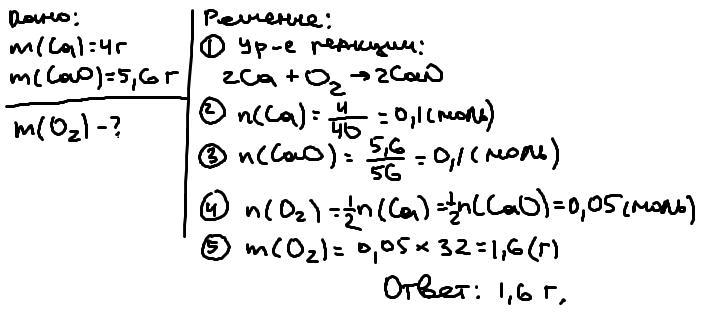 Дано:
m(Ca)=4г
m(CaO)=5,6 г
m(O₂)-?
Решение:
① Ур-е реакции:
2Ca + O₂ → 2CaO
② n(Ca) = 4/40 = 0,1 (моль)
③ n(CaO) = 5,6/56 = 0,1 (моль)
④ n(O₂) = 1/2n(Ca) = 1/2n(CaO) = 0,05 (моль)
⑤ m(O₂) = 0,05 × 32 = 1,6 (г)
Ответ: 1,6 г,